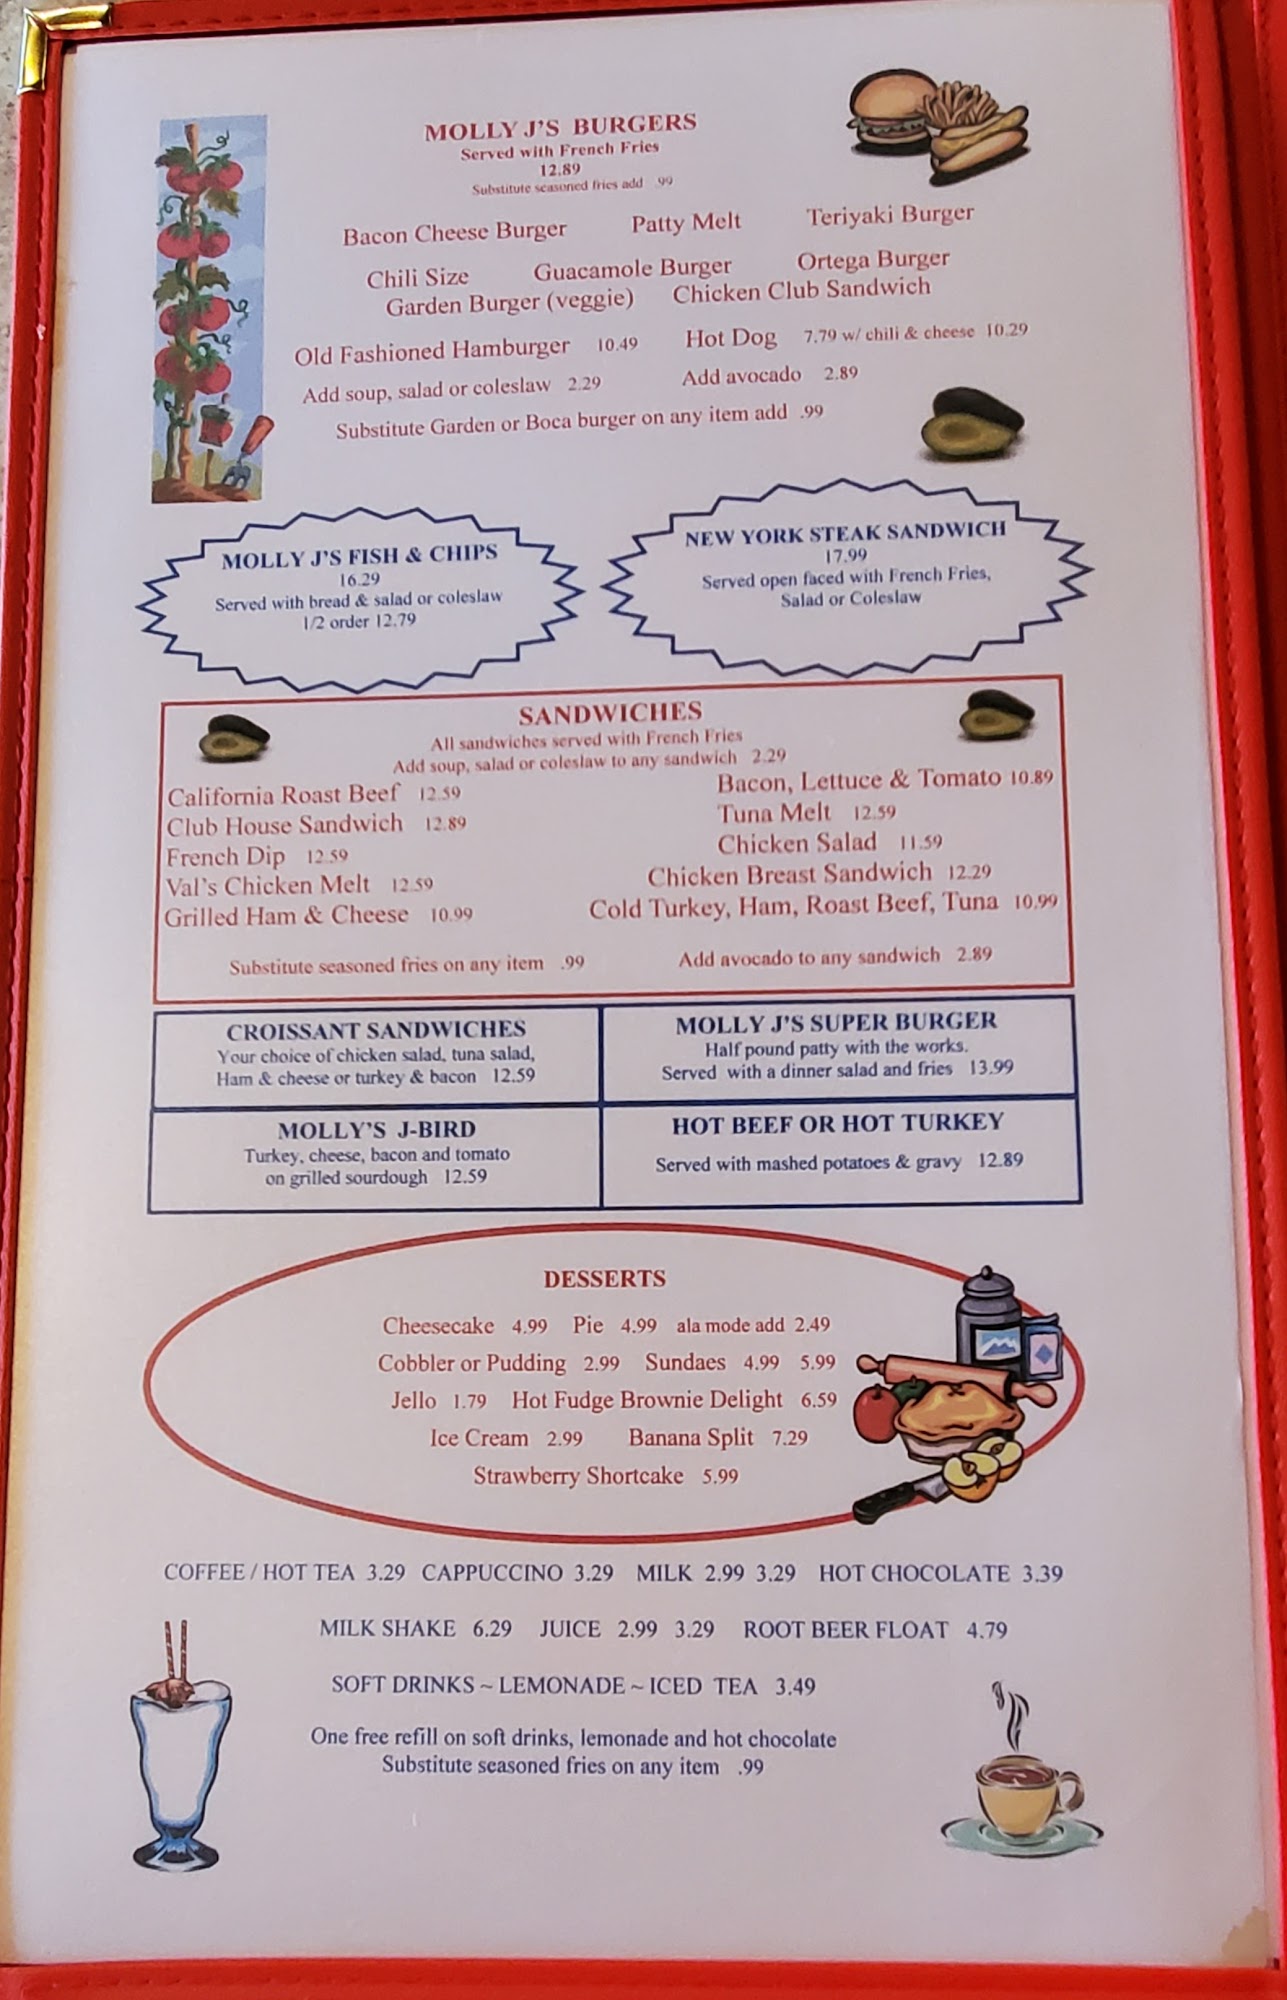 MOLLY J'S BURGERS
Served with French Fries
12.89
Substitute seasoned fries add .99
Bacon Cheese Burger Patty Melt Teriyaki Burger
Chili Size Guacamole Burger Ortega Burger
Garden Burger (veggie) Chicken Club Sandwich
Old Fashioned Hamburger 10.49 Hot Dog 7.79 w/ chili & cheese 10.29
Add soup, salad or coleslaw 2.29 Add avocado 2.89
Substitute Garden or Boca burger on any item add .99
MOLLY J'S FISH & CHIPS
16.29
Served with bread & salad or coleslaw
1/2 order 12.79
NEW YORK STEAK SANDWICH
17.99
Served open faced with French Fries,
Salad or Coleslaw
SANDWICHES
All sandwiches served with French Fries
Add soup, salad or coleslaw to any sandwich 2.29
California Roast Beef 12.59
Club House Sandwich 12.89
French Dip 12.59
Val's Chicken Melt 12.59
Grilled Ham & Cheese 10.99
Bacon, Lettuce & Tomato 10.89
Tuna Melt 12.59
Chicken Salad 11.59
Chicken Breast Sandwich 12.29
Cold Turkey, Ham, Roast Beef, Tuna 10.99
Substitute seasoned fries on any item .99 Add avocado to any sandwich 2.89
CROISSANT SANDWICHES
Your choice of chicken salad, tuna salad,
Ham & cheese or turkey & bacon 12.59
MOLLY J'S SUPER BURGER
Half pound patty with the works.
Served with a dinner salad and fries 13.99
MOLLY'S J-BIRD
Turkey, cheese, bacon and tomato
on grilled sourdough 12.59
HOT BEEF OR HOT TURKEY
Served with mashed potatoes & gravy 12.89
DESSERTS
Cheesecake 4.99 Pie 4.99 ala mode add 2.49
Cobbler or Pudding 2.99 Sundaes 4.99 5.99
Jello 1.79 Hot Fudge Brownie Delight 6.59
Ice Cream 2.99 Banana Split 7.29
Strawberry Shortcake 5.99
COFFEE / HOT TEA 3.29 CAPPUCCINO 3.29 MILK 2.99 3.29 HOT CHOCOLATE 3.39
MILK SHAKE 6.29 JUICE 2.99 3.29 ROOT BEER FLOAT 4.79
SOFT DRINKS ~ LEMONADE ~ ICED TEA 3.49
One free refill on soft drinks, lemonade and hot chocolate
Substitute seasoned fries on any item .99